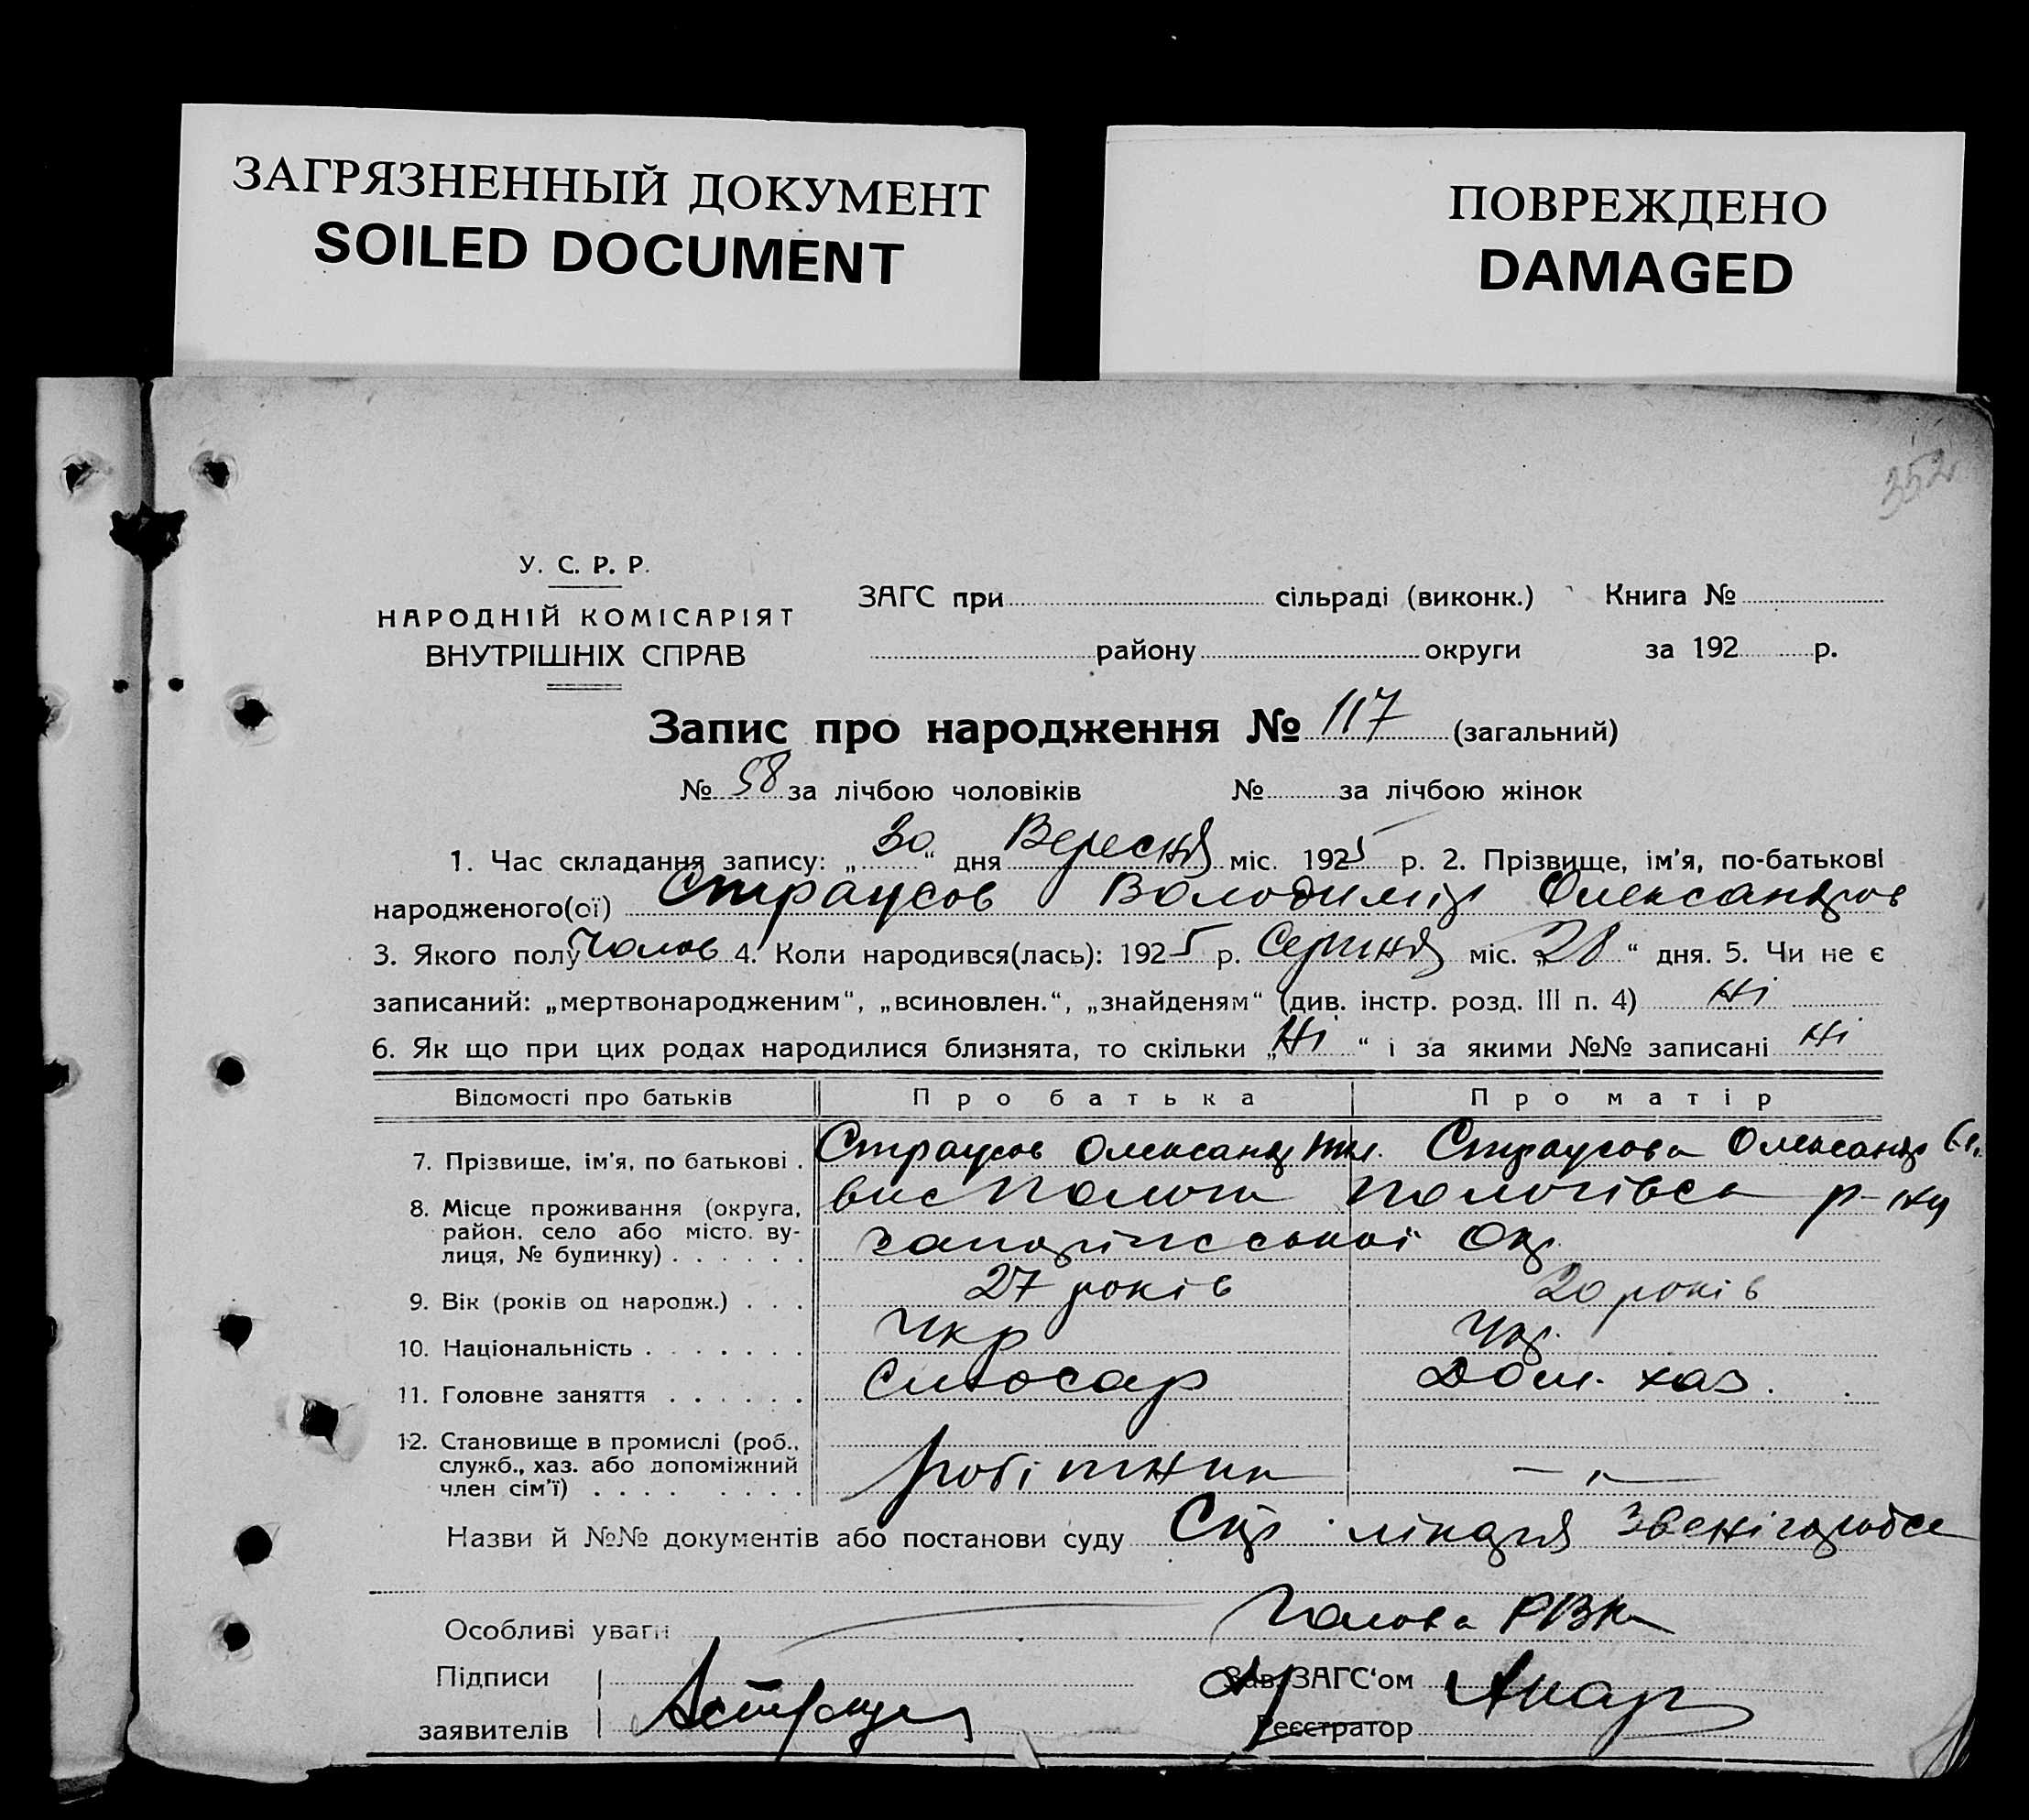 ЗАГРЯЗНЕННЫЙ ДОКУМЕНТ
SOILED DOCUMENT
ПОВРЕЖДЕНО
DAMAGED
352
У. С. Р. Р.
НАРОДНІЙ КОМІСАРІЯТ
ВНУТРІШНІХ СПРАВ
ЗАГС при сільраді (виконк.) Книга №
району округи за 192 р.
Запис про народження № 117 (загальний)
№ 58 за лічбою чоловіків № за лічбою жінок
1. Час складання запису: „30“ дня Вересня міс. 1925 р. 2. Прізвище, ім'я, по-батькові
народженого(ої) Страусов Володимир Олександров
3. Якого полу Чолов 4. Коли народився(лась): 1925 р. Серпня міс. „28“ дня. 5. Чи не є
записаний: „мертвонародженим“, „всиновлен.“, „знайденям“ (див. інстр. розд. III п. 4) Ні
6. Як що при цих родах народилися близнята, то скільки „Ні“ і за якими №№ записані Ні
Відомості про батьків Про батька Про матір
7. Прізвище, ім'я, по батькові . Страусов Олександ Страусова Олександр
8. Місце проживання (округа, район, село або місто, вулиця, № будинку) . . . . . . вис Пологи Пологівськ р-ну
Запоріжської Окр.
9. Вік (років од народж.) . . . 27 років 20 років
10. Національність . . . . . . . Укр Укр.
11. Головне заняття . . . . . . Слюсар Дом. хаз.
12. Становище в промислі (роб.,
служб., хаз. або допоміжний
член сім'ї) . . . . . . . . робітник — „ —
Назви й №№ документів або постанови суду Спр. лікаря Звенігородсь
Особливі уваги Голова РВК
Підписи
заявителів
Зав. ЗАГС'ом
Реєстратор